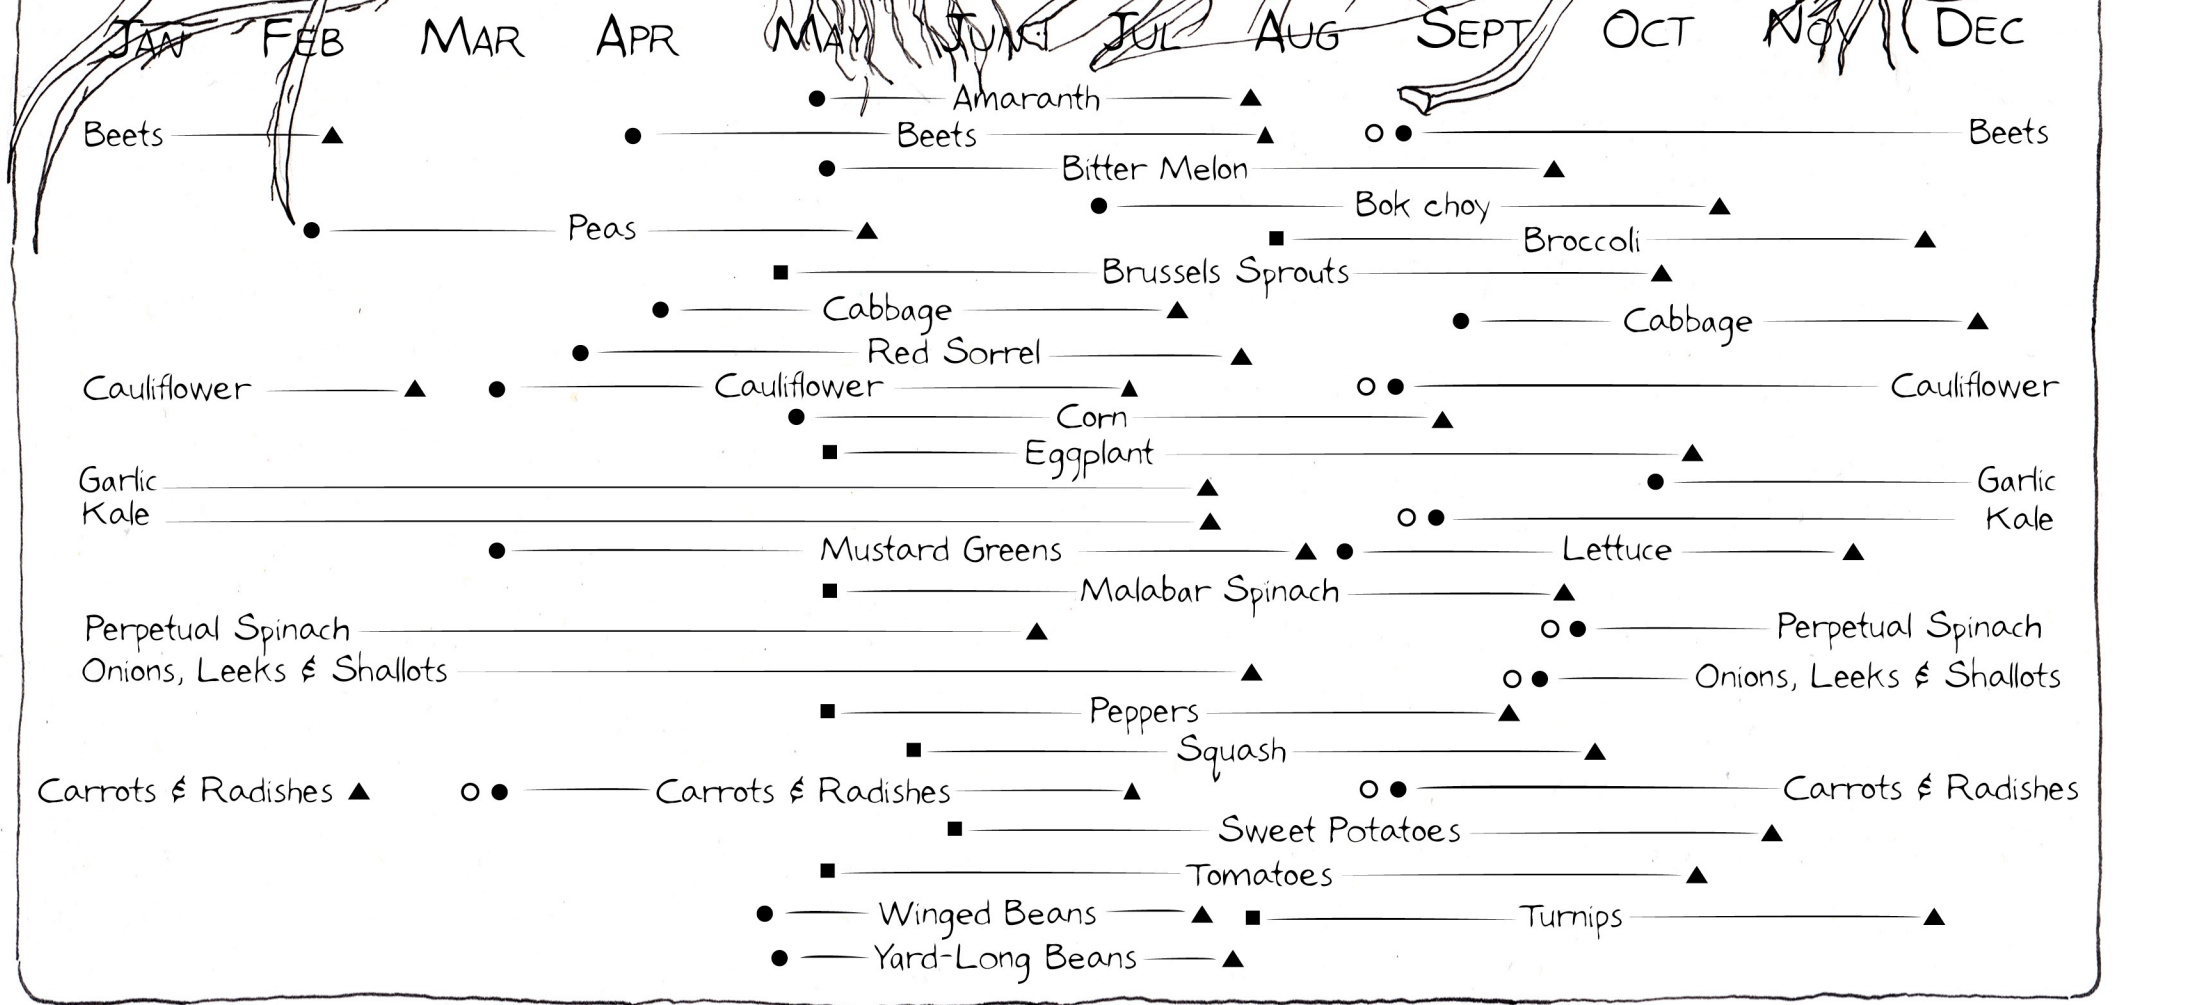 JAN FEB MAR APR MAY JUNE JUL AUG SEPT OCT NOV DEC
Amaranth
Beets Beets Beets
Bitter Melon
Bok choy
Peas
Broccoli
Brussels Sprouts
Cabbage Cabbage
Red Sorrel
Cauliflower Cauliflower Cauliflower
Corn
Eggplant
Garlic Garlic
Kale Kale
Mustard Greens Lettuce
Malabar Spinach
Perpetual Spinach Perpetual Spinach
Onions, Leeks & Shallots Onions, Leeks & Shallots
Peppers
Squash
Carrots & Radishes Carrots & Radishes Carrots & Radishes
Sweet Potatoes
Tomatoes
Winged Beans Turnips
Yard-Long Beans